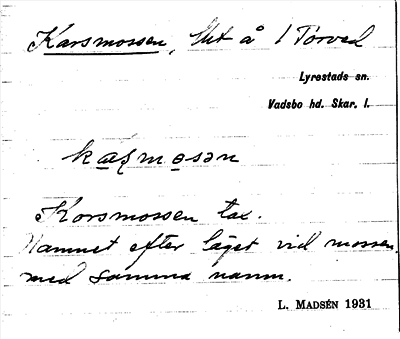 Karsmossen, lht å 1 Torved
Lyrestads sn.
Vadsbo hd. Skar. l.
Korsmossen tax.
Namnet efter läget vid mossen
med samma namn.
L. MADSÉN 1931